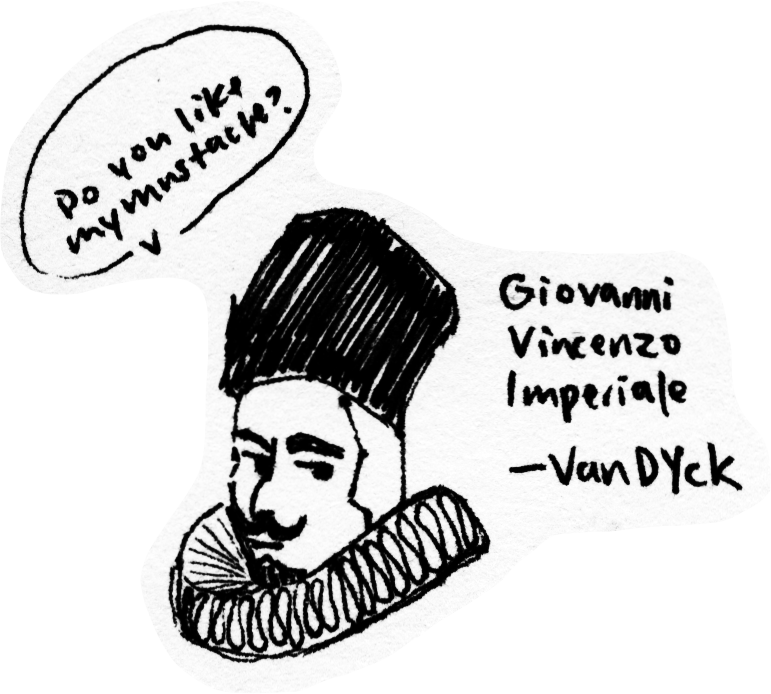 Do you like
my mustache?
Giovanni
Vincenzo
Imperiale
—Van DYck